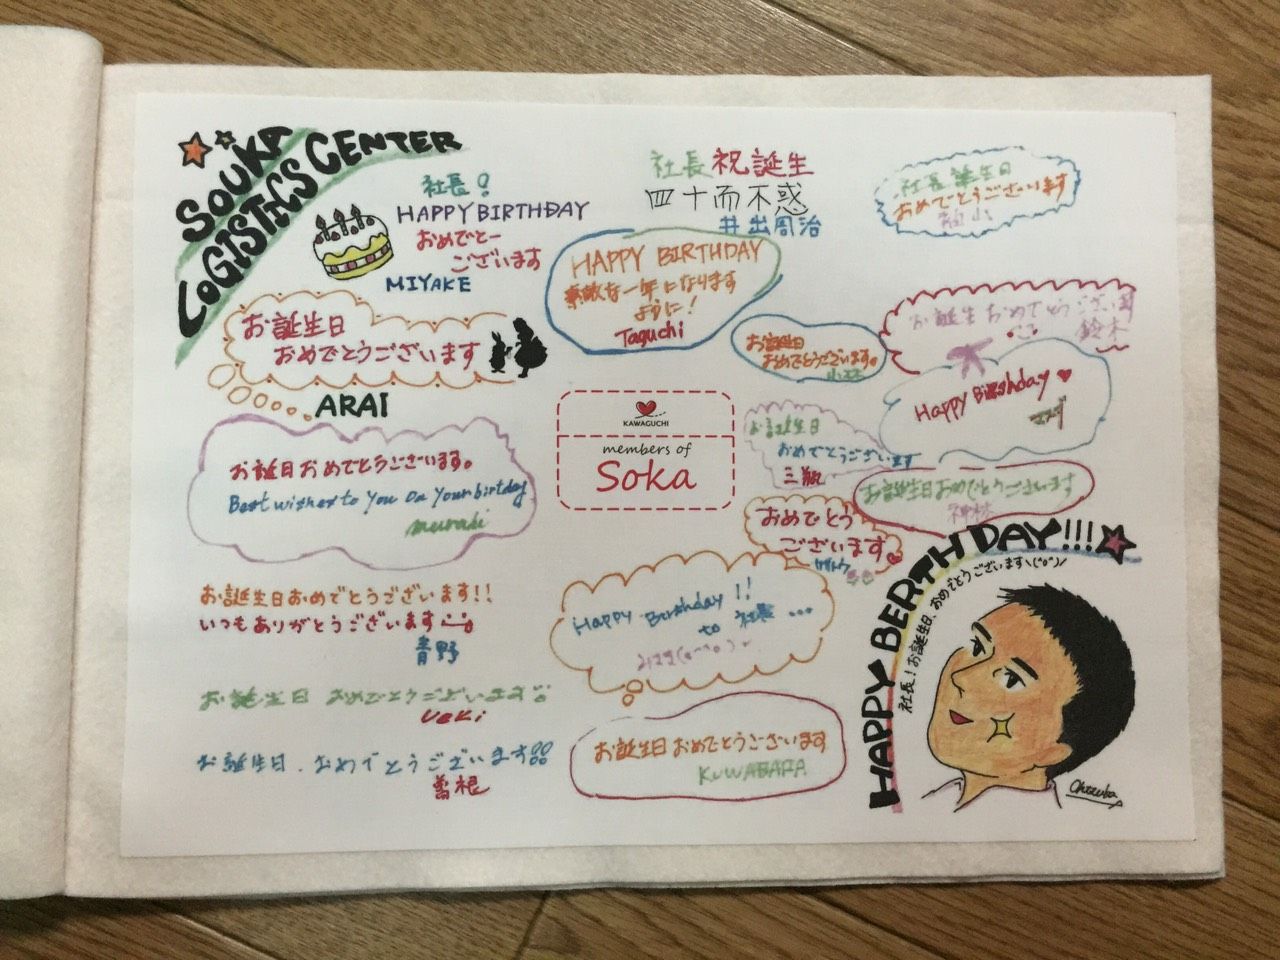 SOUKA
LOGISTICS CENTER
社長!
HAPPY BIRTHDAY
おめでとー
ございます
MIYAKE
社長祝誕生
四十而不惑
井出周治
社長誕生日
おめでとうございます
HAPPY BIRTHDAY
素敵な一年になります
ように!
Taguchi
お誕生日
おめでとうございます
ARAI
お誕生日
おめでとうございます。
お誕生おめでとうございます
鈴木
Happy Birshday
KAWAGUCHI
members of
Soka
お誕生日
おめでとうございます
三瓶
お誕生日おめでとうございます
神林
お誕日おめでとうございます。
Best wishes to You On Your birtday
muraki
おめでとう
ございます
サイトウ
お誕生日おめでとうございます!!
いつもありがとうございます
青野
Happy Birthday !!
to 社長...
お誕生日 おめでとうございます
Ueki
お誕生日.おめでとうございます
曽根
お誕生日おめでとうございます
KUWABARA
HAPPY BERTH DAY!!!
社長!お誕生日、おめでとうございますヽ(^o^)ノ
Ohtsuka